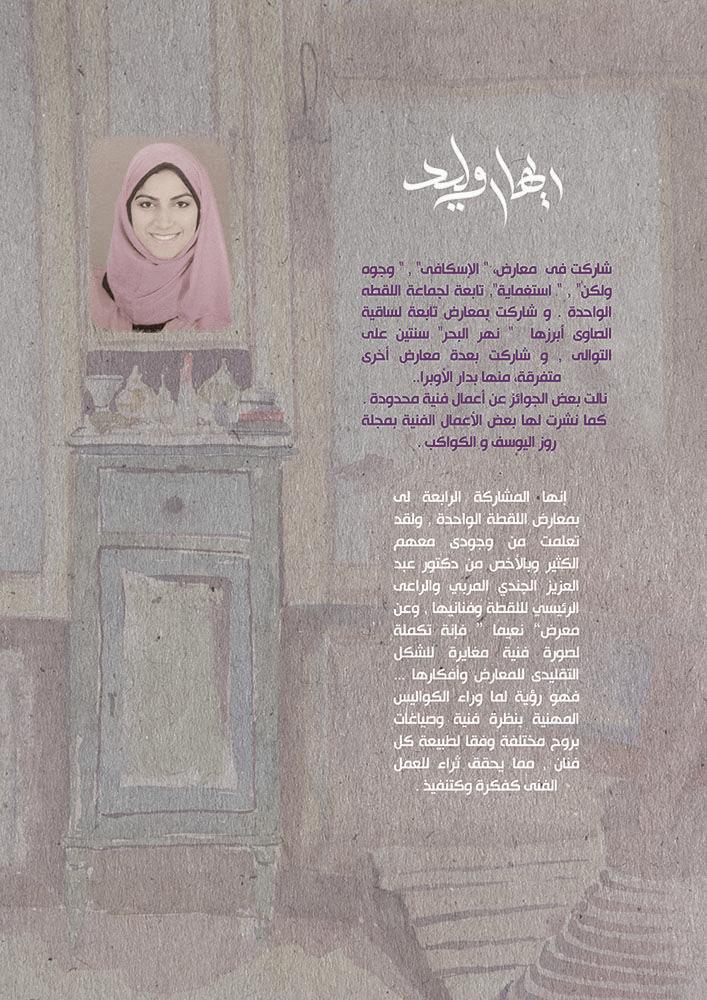 ريهام وليد
شاركت فى معارض، " الإسكافى" , " وجوه
ولكن" , " استغماية", تابعة لجماعة اللقطه
الواحدة . و شاركت بمعارض تابعة لساقية
الصاوى أبرزها " نهر البحر" سنتين على
التوالى , و شاركت بعدة معارض أخرى
متفرقة، منها بدار الأوبرا..
نالت بعض الجوائز عن أعمال فنية محدودة .
كما نشرت لها بعض الأعمال الفنية بمجلة
روز اليوسف و الكواكب .
إنها المشاركة الرابعة لى
بمعارض اللقطة الواحدة , ولقد
تعلمت من وجودى معهم
الكثير وبالأخص من دكتور عبد
العزيز الجندي المربي والراعى
الرئيسي لللقطة وفنانيها , وعن
معرض“ نعيما ” فإنة تكملة
لصورة فنية مغايرة للشكل
التقليدى للمعارض وأفكارها ...
فهو رؤية لما وراء الكواليس
المهنية بنظرة فنية وصياغات
بروح مختلفة وفقا لطبيعة كل
فنان , مما يحقق ثراء للعمل
الفنى كفكرة وكتنفيذ .